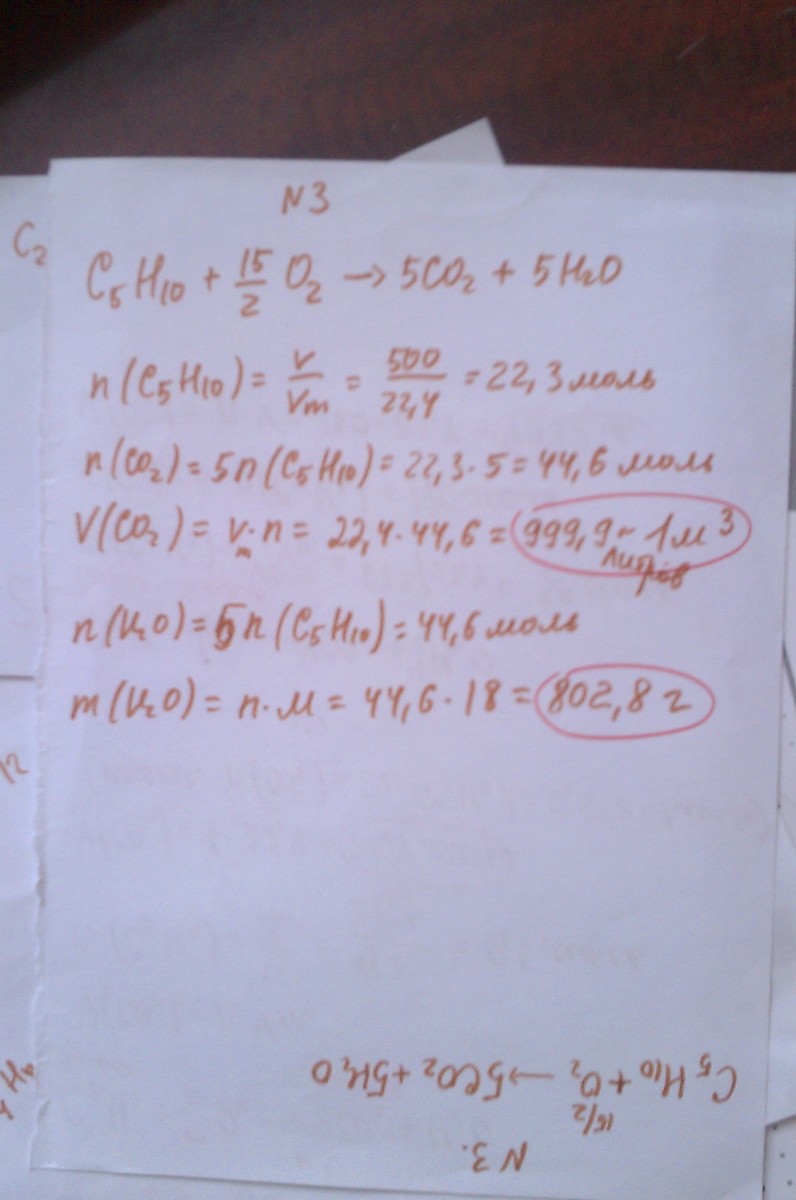 N3
C₂
C₅H₁₀ + 15/2 O₂ → 5CO₂ + 5H₂O
n(C₅H₁₀) = V/Vm = 500/22,4 = 22,3 моль
n(CO₂) = 5n(C₅H₁₀) = 22,3·5 = 44,6 моль
V(CO₂) = Vm·n = 22,4·44,6 = 999,9 ~ 1м³
литров
n(H₂O) = 5n(C₅H₁₀) = 44,6 моль
m(H₂O) = n·M = 44,6·18 = 802,8 г
N3.
C₅H₁₀ + 15/2 O₂ → 5CO₂ + 5H₂O